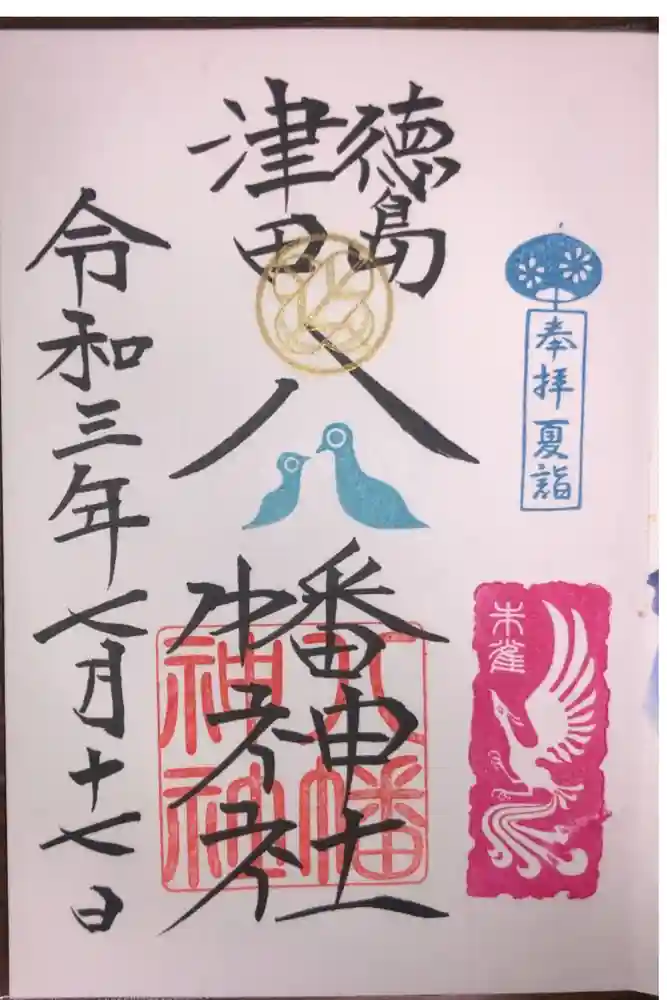 奉拝 夏詣
朱雀
徳島
津田
八幡神社
八幡
神社
令和三年七月十七日